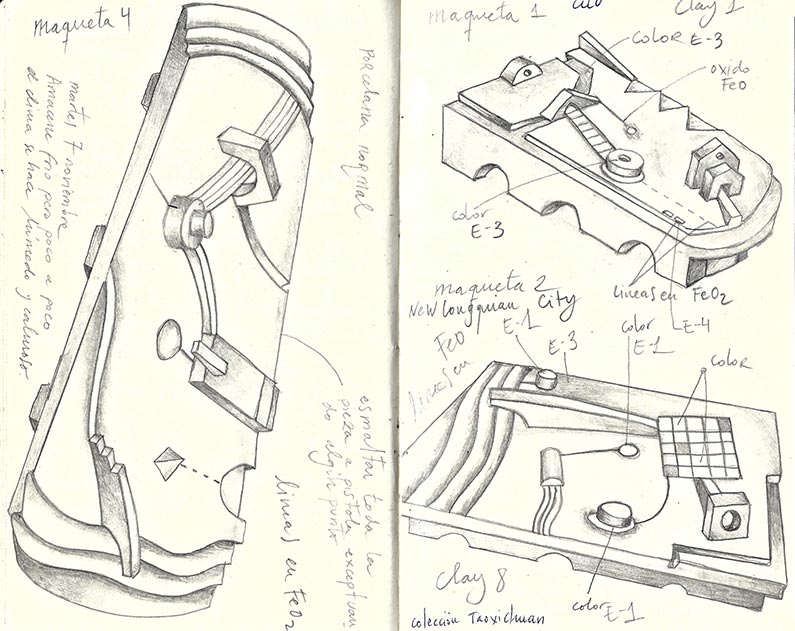 maqueta 4
martes 7 noviembre
Amanece frio pero poco a poco
el clima se hace húmedo y caluroso
porcelana normal
esmaltar toda la
pieza a pistola exceptuan
do algún punto
lineas en FeO2
maqueta 1
Clay 1
COLOR E-3
OXIDO
FeO
color
E-3
lineas en FeO2
E-4
maqueta 2
New Longquan City
FeO
lineas en
E-1
E-3
color
E-1
color
Clay 8
color E-1
colección Taoxichuan